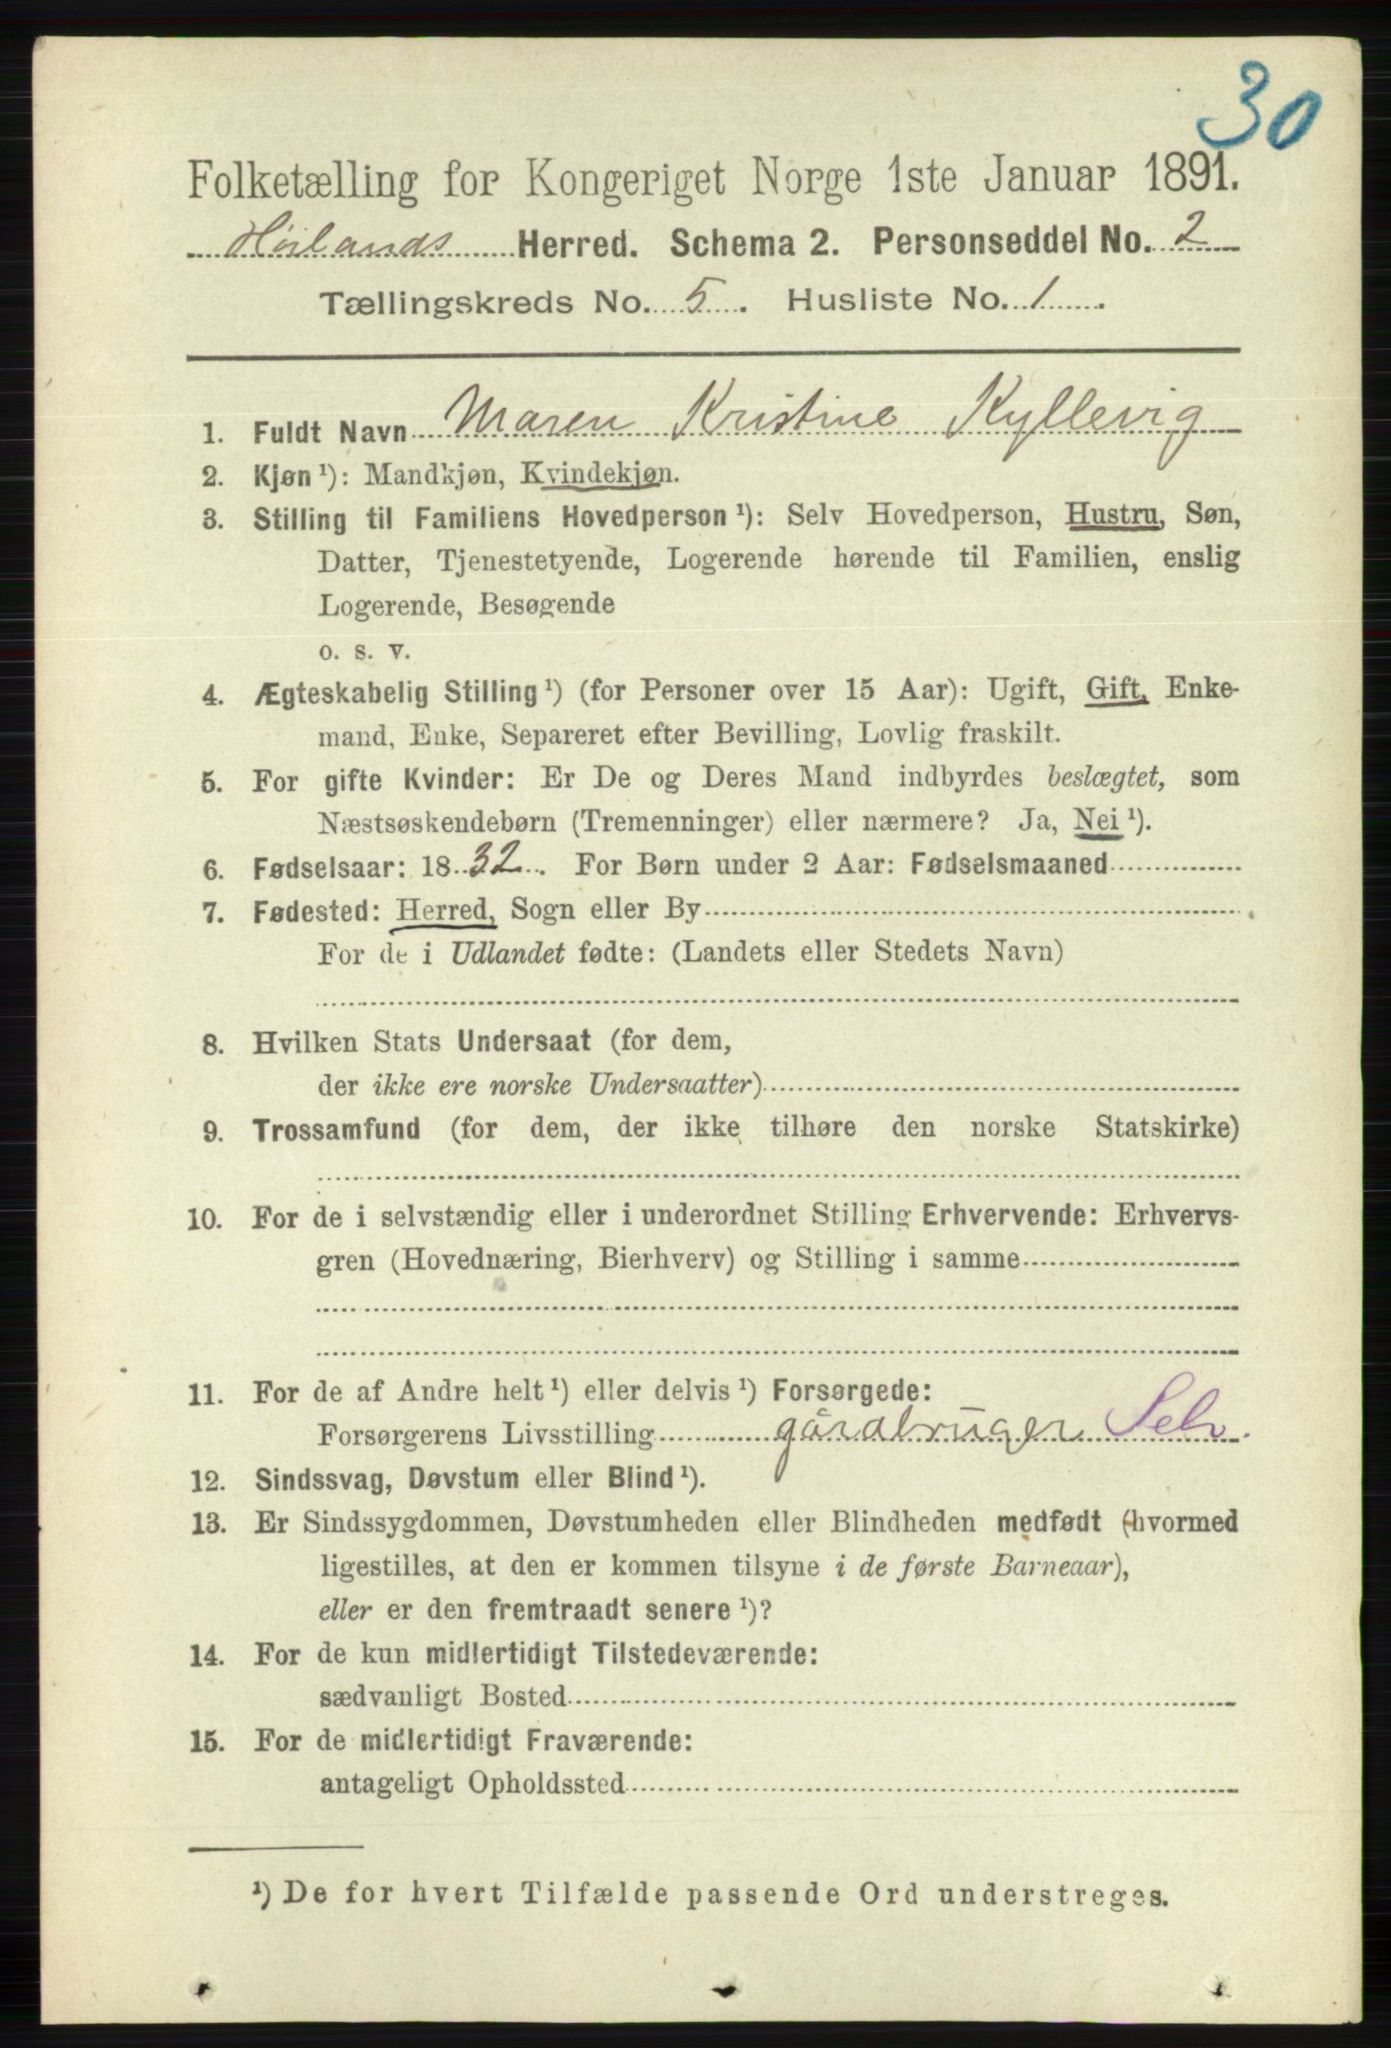 30
Folketælling for Kongeriget Norge 1ste Januar 1891.
Høilands Herred. Schema 2. Personseddel No. 2
Tællingskreds No. 5. Husliste No. 1.
1. Fuldt Navn Maren Kristine Kyllevig
2. Kjøn ¹): Mandkjøn, Kvindekjøn.
3. Stilling til Familiens Hovedperson ¹): Selv Hovedperson, Hustru, Søn,
Datter, Tjenestetyende, Logerende hørende til Familien, enslig
Logerende, Besøgende
o. s. v.
4. Ægteskabelig Stilling ¹) (for Personer over 15 Aar): Ugift, Gift, Enke-
mand, Enke, Separeret efter Bevilling, Lovlig fraskilt.
5. For gifte Kvinder: Er De og Deres Mand indbyrdes beslægtet, som
Næstsøskendebørn (Tremenninger) eller nærmere? Ja, Nei ¹).
6. Fødselsaar: 1832. For Børn under 2 Aar: Fødselsmaaned
7. Fødested: Herred, Sogn eller By
For de i Udlandet fødte: (Landets eller Stedets Navn)
8. Hvilken Stats Undersaat (for dem,
der ikke ere norske Undersaatter)
9. Trossamfund (for dem, der ikke tilhøre den norske Statskirke)
10. For de i selvstændig eller i underordnet Stilling Erhvervende: Erhvervs-
gren (Hovednæring, Bierhverv) og Stilling i samme
11. For de af Andre helt ¹) eller delvis ¹) Forsørgede:
Forsørgerens Livsstilling gårdbruger Selv.
12. Sindssvag, Døvstum eller Blind ¹).
13. Er Sindssygdommen, Døvstumheden eller Blindheden medfødt (hvormed
ligestilles, at den er kommen tilsyne i de første Barneaar),
eller er den fremtraadt senere ¹)?
14. For de kun midlertidigt Tilstedeværende:
sædvanligt Bosted
15. For de midlertidigt Fraværende:
antageligt Opholdssted
¹) De for hvert Tilfælde passende Ord understreges.